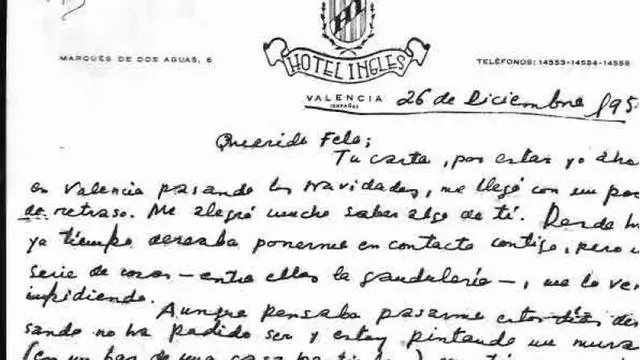 HOTEL INGLES
MARQUÉS DE DOS AGUAS, 6
TELÉFONOS: 14553-14554-14555
VALENCIA
(ESPAÑA)
26 de Diciembre 195
Querido Felo;
Tu carta, por estar yo aho
en Valencia pasando las Navidades, me llegó con un po
de retraso. Me alegró mucho saber algo de tí. Desde h
ya tiempo deseaba ponerme en contacto contigo, pero u
serie de cosas – entre ellas la gandulería –, me lo ve
impidiendo.
Aunque pensaba pasarme estos días des
sando no ha podido ser y estoy pintando un mura
(en un bar de una casa